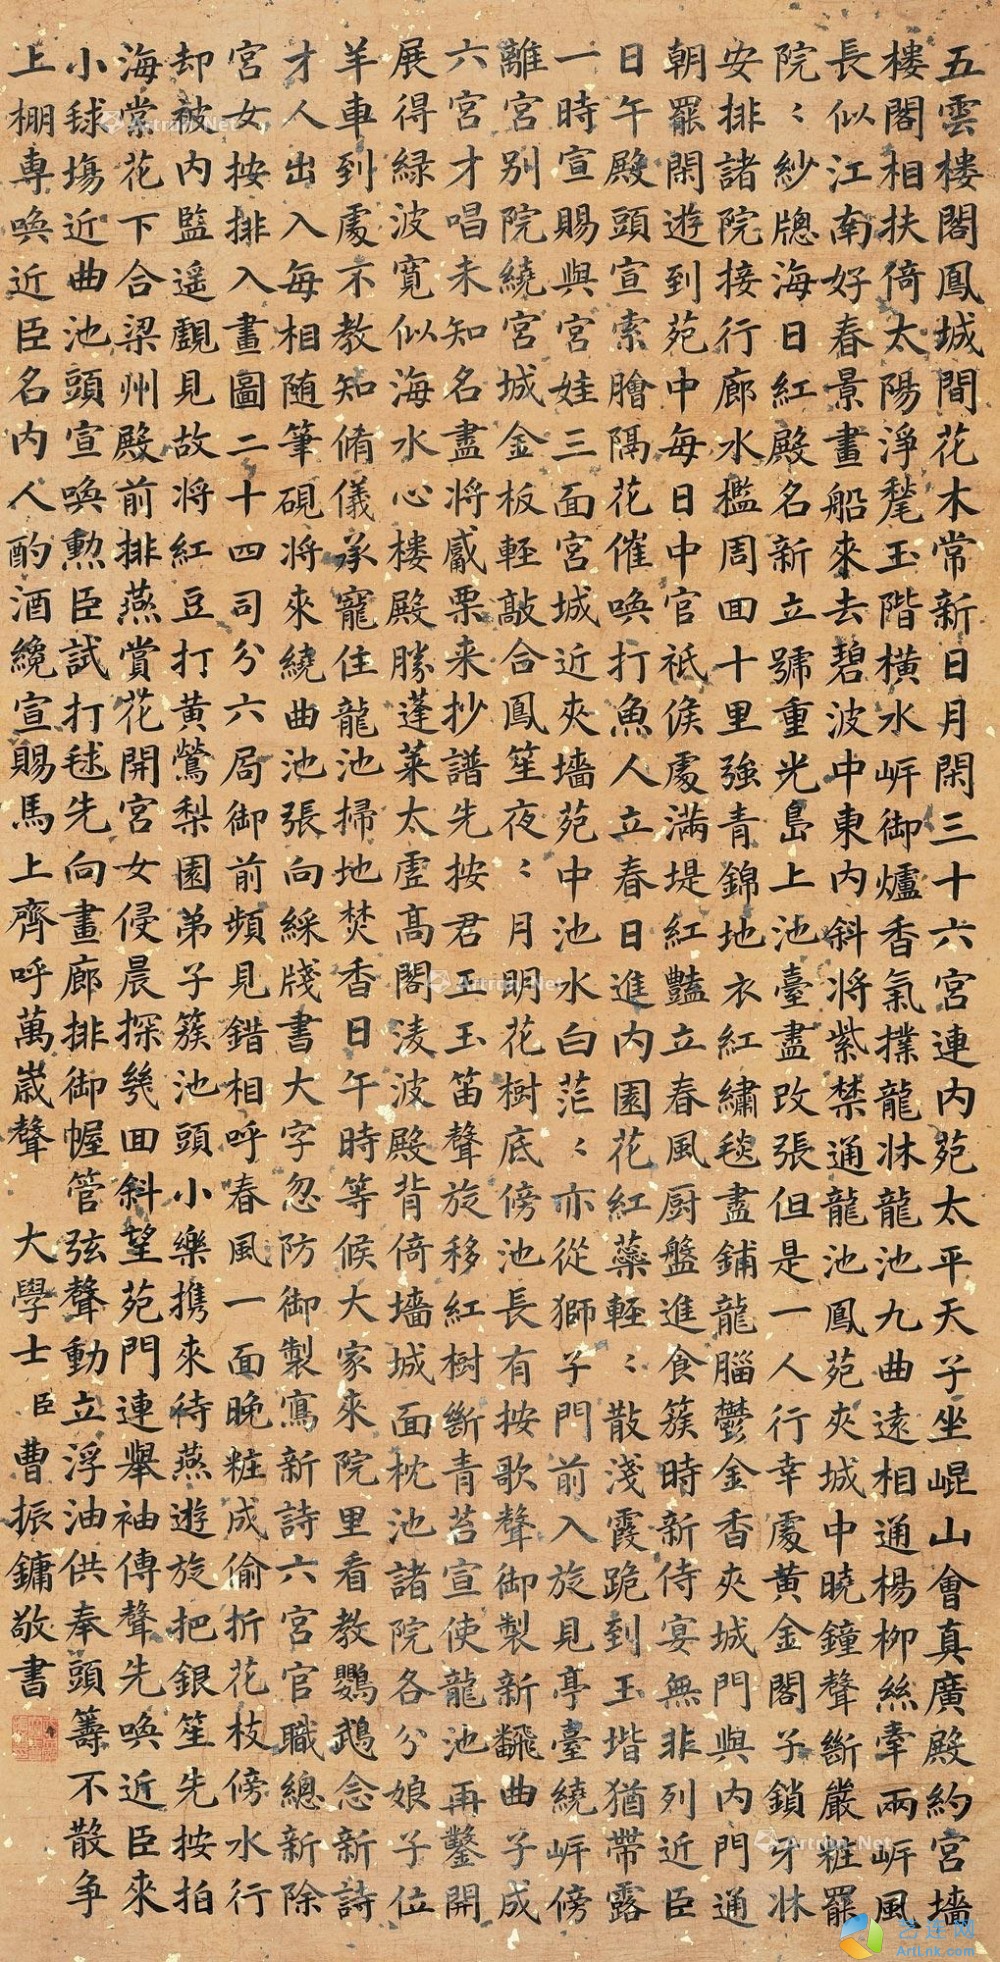 五雲楼閣鳳城間花木常新日月閑三十六宮連内苑太平天子坐崐山會真廣殿約宮墻
楼閣相扶倚太陽淨甃玉階橫水岸御爐香氣撲龍牀龍池九曲遠相通楊栁絲牽兩岸風
長似江南好春景畫船來去碧波中東内斜将紫禁通龍池鳳苑夾城中曉鐘聲斷嚴粧罷
院〻紗牕海日紅殿名新立號重光島上池臺盡改張但是一人行幸處黄金閣子鎖牙牀
安排諸院接行廊水檻周回十里強青錦地衣紅繡毯盡鋪龍腦鬱金香夾城門與内門通
朝罷閑遊到苑中每日中官祇候處滿堤紅豔立春風厨盤進食簇時新侍宴無非列近臣
日午殿頭宣索膾隔花催喚打魚人立春日進内園花紅蘂輕〻散淺霞跪到玉堦猶帶露
一時宣賜與宮娃三面宮城近夾墻苑中池水白茫〻亦從獅子門前入旋見亭臺繞岸傍
離宮别院繞宮城金板輕敲合鳳笙夜〻月明花樹底傍池長有按歌聲御製新翻曲子成
六宮才唱未知名盡将觱栗来抄譜先按君王玉笛聲旋移紅樹斷青苔宣使龍池再鑿開
展得緑波寛似海水心楼殿勝蓬萊太虚高閣淩波殿背倚墻城面枕池諸院各分娘子位
羊車到處不教知脩儀承寵住龍池掃地焚香日午時等候大家來院里看教鸚鵡念新詩
才人出入每相随筆硯将來繞曲池張向綵牋書大字忽防御製寫新詩六宮官職總新除
宮女按排入畫圖二十四司分六局御前頻見錯相呼春風一面晚粧成偷折花枝傍水行
却被内監遥覷見故将紅豆打黄鶯梨園弟子簇池頭小樂携來待燕遊旋把銀笙先按拍
海棠花下合梁州殿前排燕賞花開宮女侵晨探幾回斜望苑門連舉袖傳聲先喚近臣來
小毬塲近曲池頭宣喚勲臣試打毬先向畫廊排御幄管弦聲動立浮油供奉頭籌不散争
上棚専喚近臣名内人酌酒纔宣賜馬上齊呼萬嵗聲 大學士臣曹振鏞敬書
艺连网
ArtLnk.com